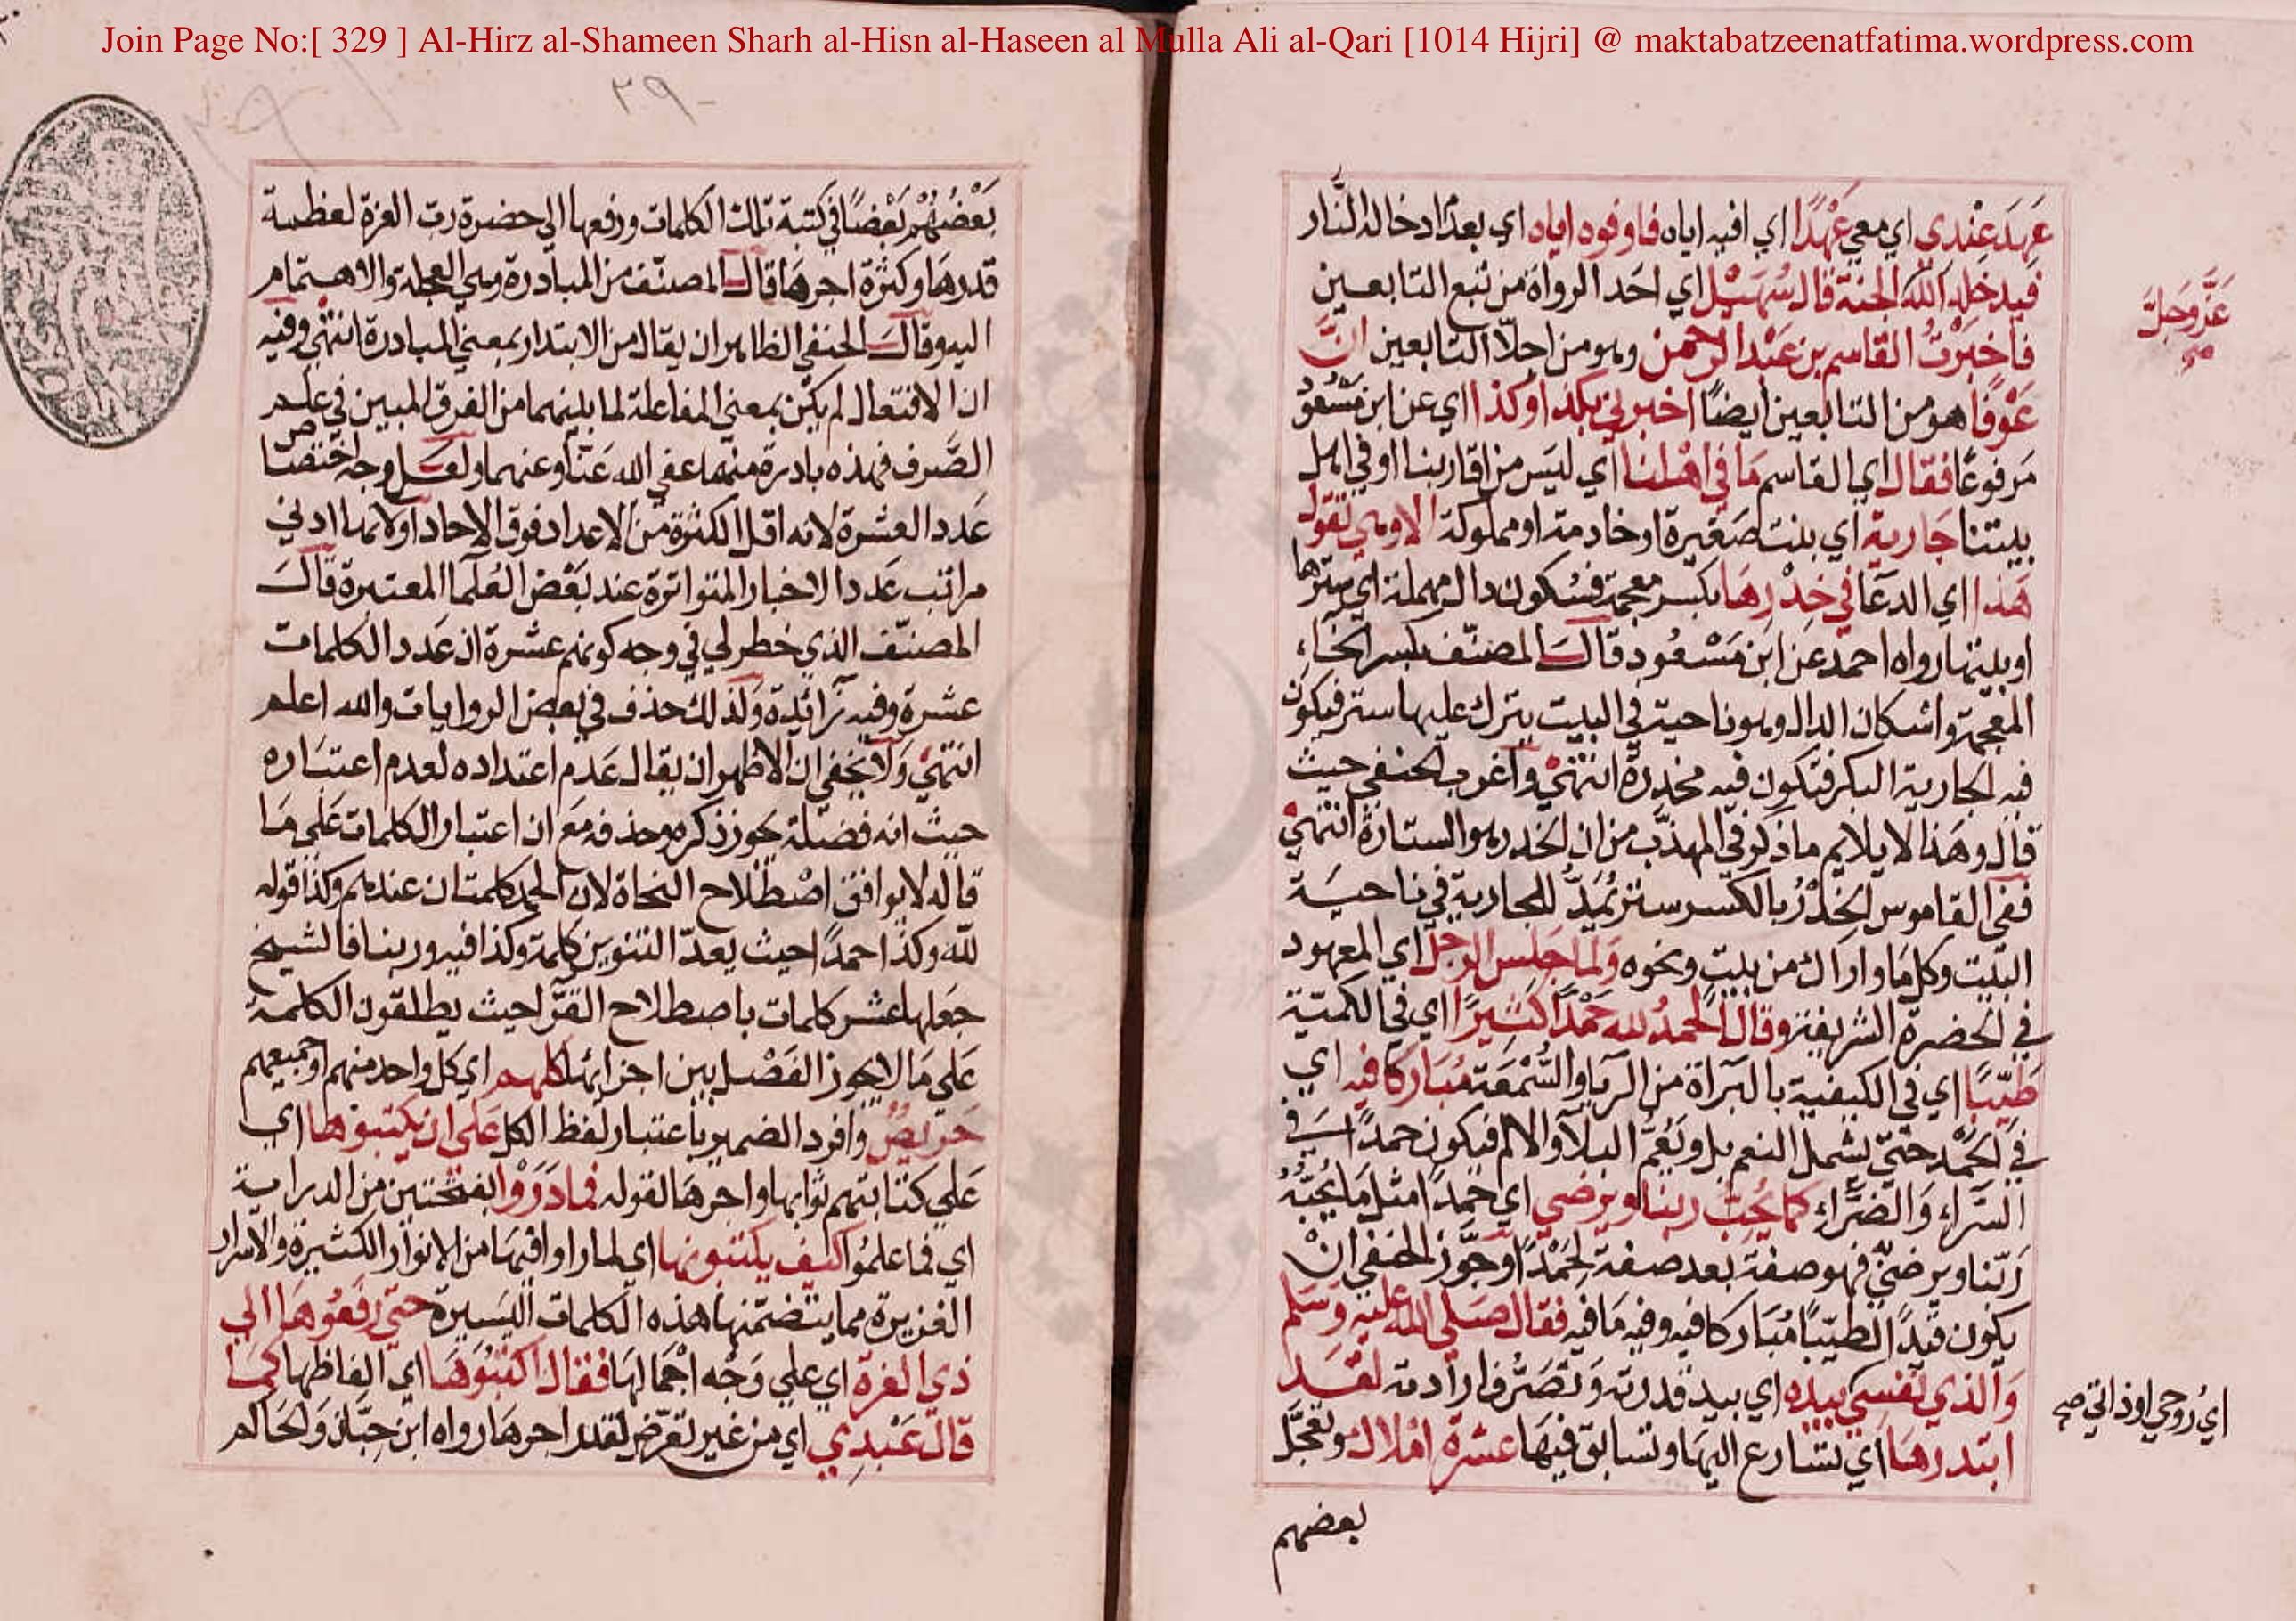 Join Page No:[ 329 ] Al-Hirz al-Shameen Sharh al-Hisn al-Haseen al Mulla Ali al-Qari [1014 Hijri] @ maktabatzeenatfatima.wordpress.com
عَهِدَ عِنْدِي اي معي عَهْدًا اي افيه اياه فاوفوه اياه اي بعد ادخاله النَّار
فيدخله الله الجنة قال سُهَيْل اي احَد الرواة من تبع التابعين
عَزَّ وَجَلَّ
فاخبَرْتُ القاسم بن عَبْد الرحمن وهو من اجلّا التابعين انَّ
عَوْفًا هو من التابعين ايضًا اخبرني بكذا وكذا اي عن ابن مَسْعود
مَرفوعًا فقال اي القاسم مَا في اهْلنا اي ليَس من اقاربنا او في اهل
بيتنا جَارية اي بنت صَغيرة او خادمة او مملوكة الا وهي تقول
هَذا اي الدعَا في خِدْرِهَا بكسر معجمة فسُكون دال مهملة اي سترها
او بيتها رواه احمد عَن ابن مَسْعُود قال المصنّف بكسر الخآء
المعجمة واسْكان الدال وهو ناحية في البيت يترك عليها ستر فيكون
فيه الجارية البكر فتكون فيه مخدرة انتهيْ وأغرب الحنفي حيث
قال وهَذا لا يلايم ما ذكر في المهذّب من ان الخدر هو الستارة انتهيْ
ففي القاموس الخِدْرُ بالكسر ستر يُمَدُّ للجارية في ناحيَة
البَيت وكل مَا واراك من بيت ونحوه وَلما جَلس الرجلُ اي المعهود
في الحضرة الشريفة وقال الحمدُ لله حَمْدًا كَثِيرًا اي في الكميّة
طَيّبًا اي في الكيفية بالبَرآة من الريا والسُّمْعَة مُبَاركا فيه اي
في الحَمْد حتيّ يشمل النعم بل ويَعُمّ البلآ والالم فيكون حمدًا في
السَّراء وَالضرَّاء كما يُحِبُّ ربنا ويرضي اي حَمدًا مثل مَا يُحِبُّهُ
رَبّنا ويرضيّ فهو صفة بعد صفة لحَمْدًا وجَوَّزَ الحنفي انْ
يكون قيدًا لطيّبًا مُبَاركا فيه وفيه مَا فيه فقال صَلي الله عليه وَسَلم
وَالذي نفسي بيده اي بيد قدرته وَتَصَرُّف ارادته لقَد
اي روحي او ذاتي صح
ابتدرهَا اي تسَارع اليهَا وتسابق فيهَا عشرة املاك وتعجَّل
بعضهم
٢٩٠
بَعْضُهُمْ بَعْضًا في كتبة تلك الكلمات ورفعها الي حضرة رب العزة لعظمة
قدرهَا وكثرة اجرهَا قال المصنّف من المبادرة وهي العجلة والاهتمام
اليه وقال الحنفي الظاهر ان يقال من الابتدار بمعني المبادرة انتهي وفيه
ان الافتعال لم يكُن بمعني المفاعلة لما بينهما من الفرق المبين في علم
الصَّرف فهذه بادرة منهما عفي الله عَنّا وعنهما ولعَل وجه اختصَاص
عَدد العشرة لانه اقل الكثرة من الاعداد فوق الاحاد او لانها ادني
مراتب عَدد الاخبار المتواترة عند بَعْض العُلمآ المعتبرة قالَ
المصنّف الذي خطر لي في وجه كونهم عشرة ان عَدد الكلمات
عشرة وفيه زائدة وَلذلك حذف في بعض الروايات والله اعلم
انتهيْ وَلا يخفي ان الاظهر ان يقال عَدم اعتداده لعدم اعتبَاره
حيث انه فضلة جوز ذكره وحذفه مَع ان اعتبار الكلمات عَلي مَا
قاله لا يوافق اصْطلاح النحاة لان الحمد كلمتان عندهم وكذا قوله
لله وكذا حمدًا حيث يعدّ التنوين كلمة وكذا فيه وربنا فالشيخ
جَعلها عشر كلمات باصطلاح القرّا حيث يطلقون الكلمة
عَلي مَا لا يجوز الفَصْل بين اجزائها كلهم اي كل واحد منهم او جميعهم
حَريصٌ وافرد الضمير باعتبار لفظ الكل عَلي ان يكتبوهَا اي
عَلي كتابتهم ثوابها واجرهَا لقوله فما دَرَوْا بفتحتين من الدراية
اي فما علمُوا كيف يكتبونها اي لما راوا فيهَا من الانوار الكثيرة والاسرار
الغزيرة مما يتضمّنها هذه الكلمات اليَسيرة حتي رفعُوهَا الي
ذي العزة اي علي وَجْه اجْمالهَا فقال اكتبُوهَا اي الفاظها كمَا
قال عَبْدِي اي من غير تعرّض لقدر اجرهَا رواه ابن حبّان وَالحَاكم